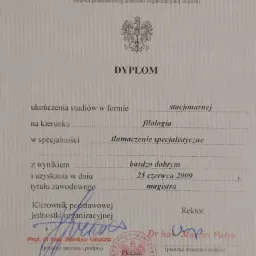 DYPLOM
ukończenia studiów w formie stacjonarnej
na kierunku filologia
w specjalności tłumaczenie specjalistyczne
z wynikiem bardzo dobrym
i uzyskania w dniu 25 czerwca 2009 r.
tytułu zawodowego magistra
Kierownik podstawowej
jednostki organizacyjnej
Rektor